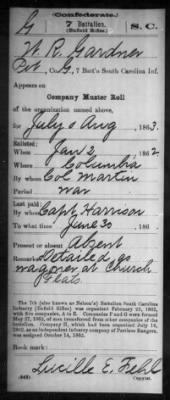 (Confederate.)
G 7 Battalion, S.C.
(Enfield Rifles)
W. R. Gardner
Pvt, Co. G, 7 Batt'n South Carolina Inf.
Appears on
Company Muster Roll
of the organization named above,
for July & Aug, 1863.
Enlisted:
When Jan 2, 1862
Where Columbia
By whom Col Martin
Period war
Last paid:
By whom Capt Harrison
To what time June 30, 186
Present or absent Absent
Remarks: Detailed as
wagoner at Church
Flats
The 7th (also known as Nelson's) Battalion South Carolina
Infantry (Enfield Rifles) was organized February 22, 1862,
with five companies, A to E. Companies F and G were formed
May 27, 1862, of men transferred from other companies of the
battalion. Company H, which was organized July 14,
1862, as an independent infantry company of Partisan Rangers,
was assigned October 14, 1862.
Book mark:
(642) Lucille E. Fehl
Copyist.